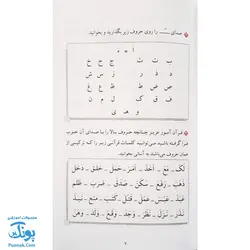 صدای ـَـ را روی حروف زیر بگذارید و بخوانید.
ب ت ث ج ح خ
د ذ ر ز س ش
ص ض ط ظ ع غ
ف ق ک ل م ن
و هـ ی
قرآن آموز عزیز چنانچه حروف بالا را با صدای آن خوب
فرا گرفته باشید می‌توانید کلمات قرآنی زیر را که ترکیبی از
همان حروف می‌باشند به آسانی بخوانید.
لَکَ ـ مَعَ ـ اَخَذَ ـ اَمَرَ ـ جَعَلَ ـ خَلَقَ ـ دَخَلَ
ذَهَبَ ـ رَفَعَ ـ سَکَنَ ـ صَدَقَ ـ ضَرَبَ ـ ظَلَمَ
عَبَسَ ـ عَدَلَ ـ عَمَلَ ـ قَتَلَ ـ کَتَبَ ـ مَنَعَ ـ
نَذَرَ ـ نَزَلَ ـ نَظَرَ ـ وَجَدَ ـ وَقَعَ ـ وَلَدَ ـ وَهَنَ
۷
محصولات آموزشی
پونک
Poonak.com